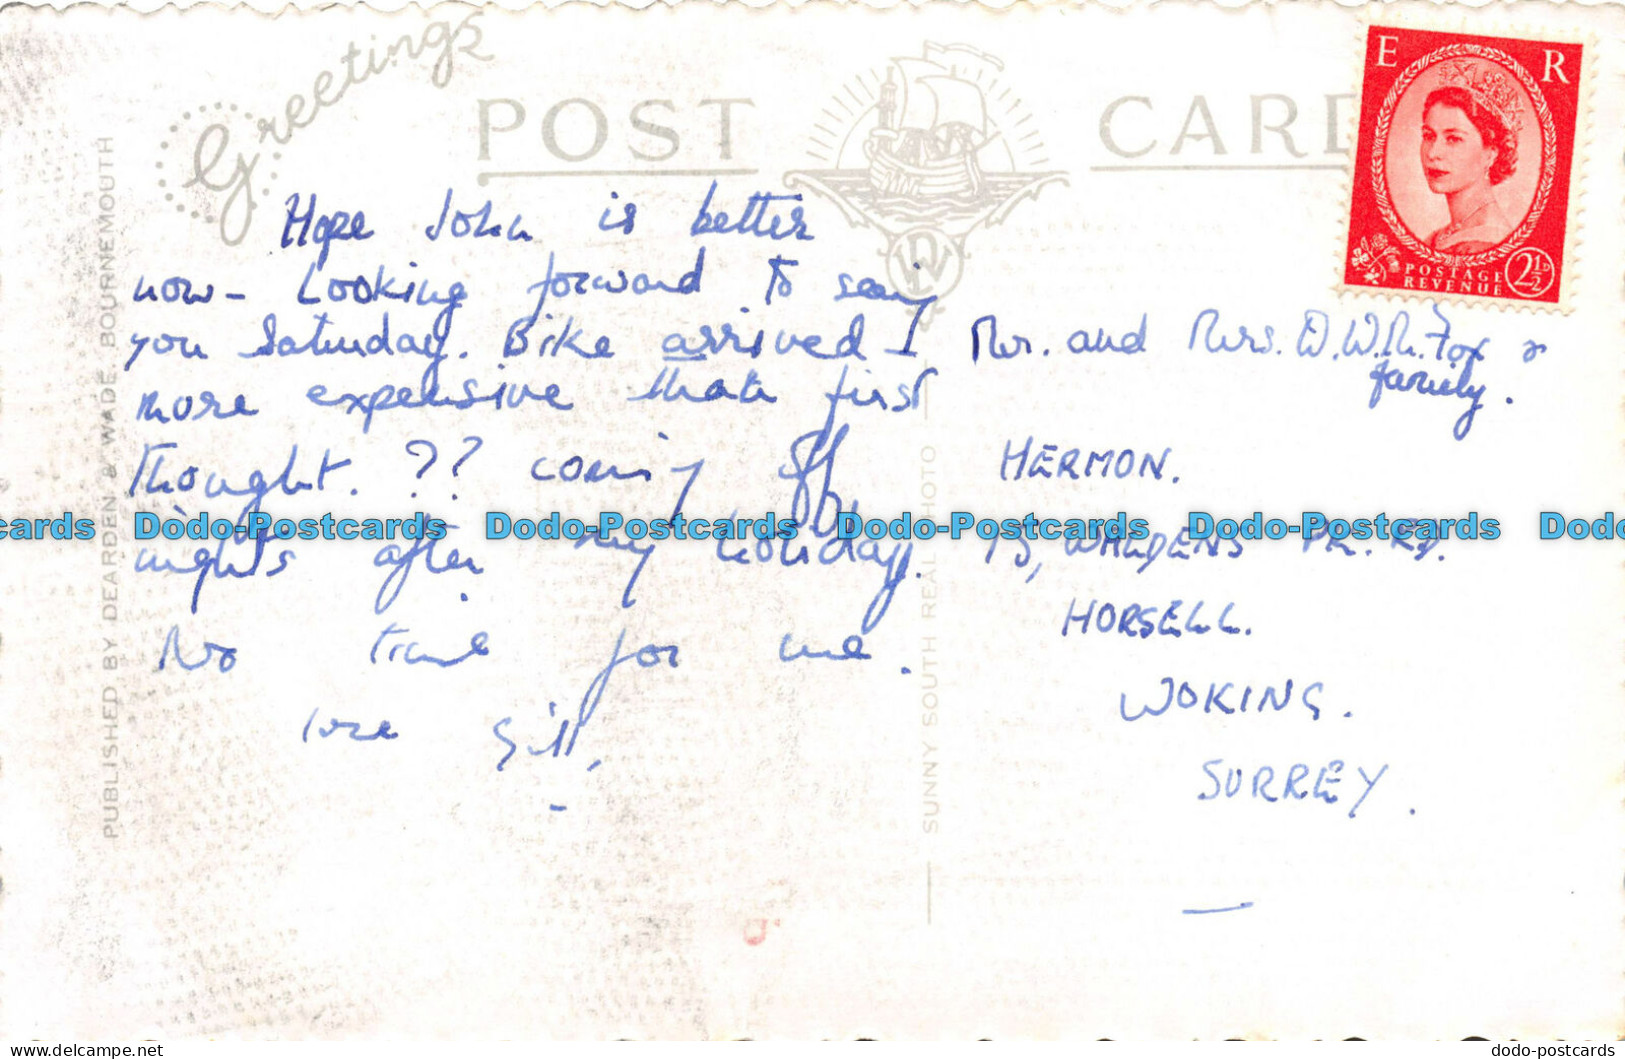 Greetings
POST CARD
E R
POSTAGE
REVENUE
2½D
PUBLISHED BY DEARDEN & WADE, BOURNEMOUTH
SUNNY SOUTH REAL PHOTO
Hope John is better
now - Looking forward to seeing
you Saturday. Bike arrived -
more expensive than first
thought. ?? coming off
nights after my holiday.
No time for me.
love Gill,
Mr. and Mrs. D.W.R. Fox &
family.
HERMON.
WALDENS PK. RD.
HORSELL.
WOKING.
SURREY.
Dodo-Postcards Dodo-Postcards Dodo-Postcards Dodo-Postcards
dodo-postcards.delcampe.net
dodo-postcards